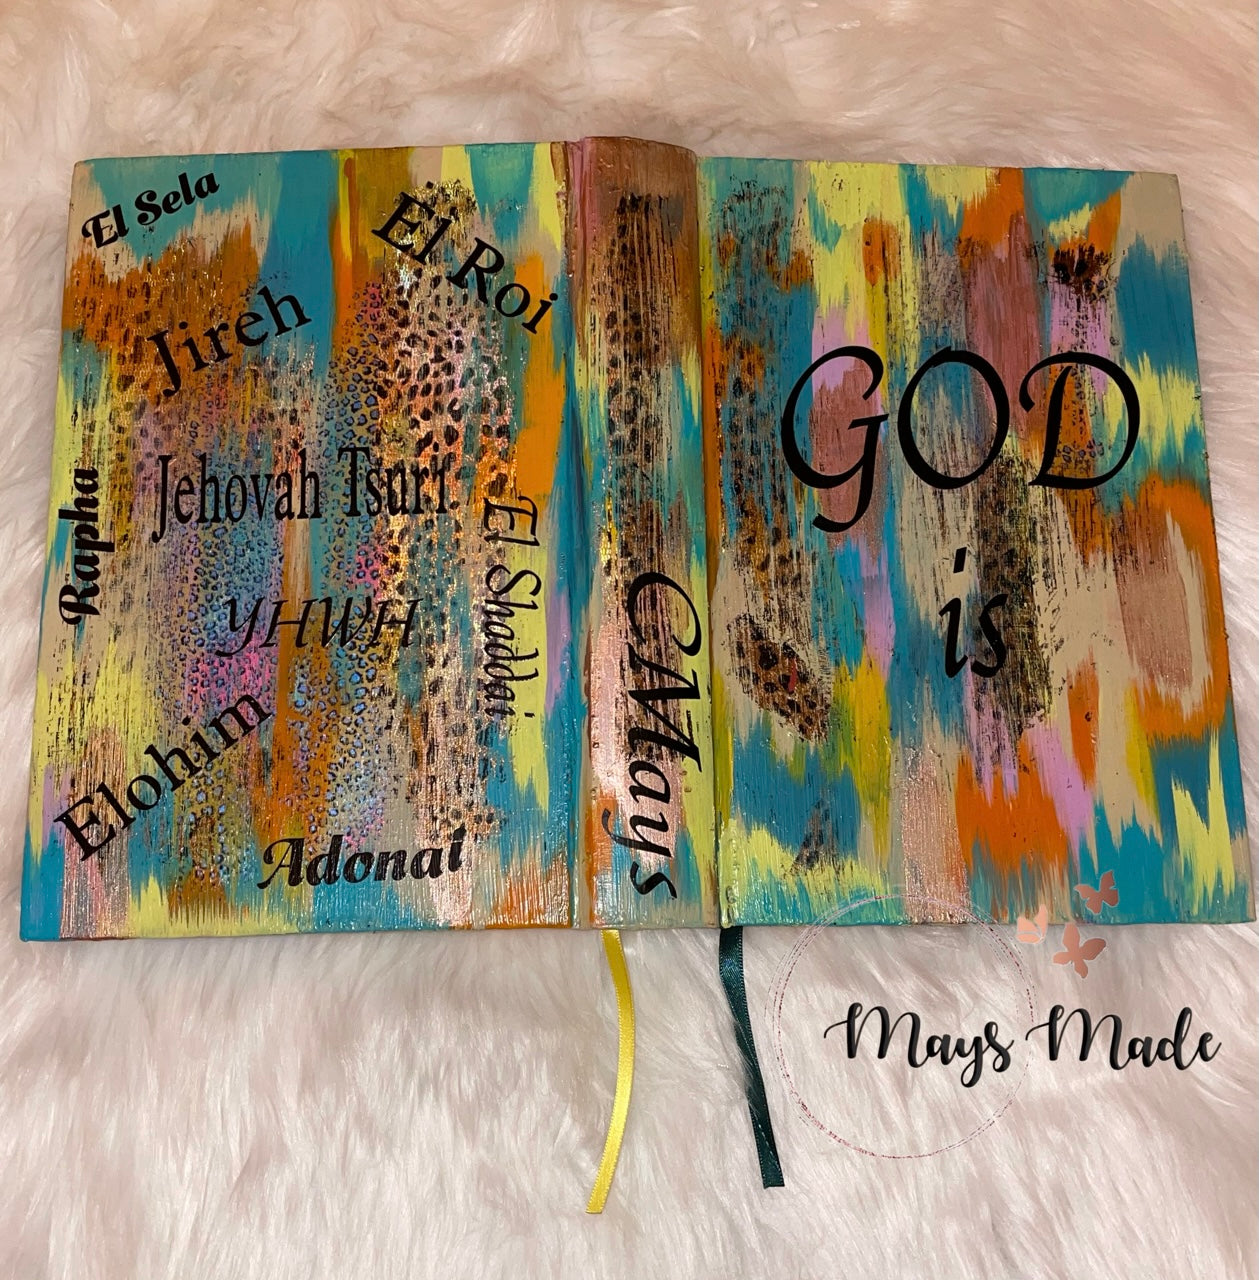 El Sela
El Roi
Jireh
Jehovah Tsuri
Rapha
El Shaddai
YHWH
Elohim
Adonai
CMays
GOD
is
Mays Made